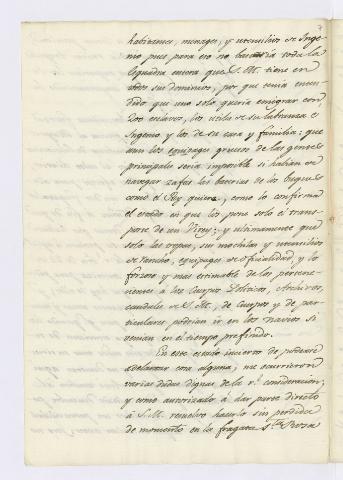 habitantes, menages, y utensilios de Inge-
nio pues para eso no bastaria toda la
Esquadra entera que S. M. tiene en
todos sus dominios, por que tenia enten-
dido que uno solo queria emigrar con
dos esclavos, los utiles de su labranza e
Ingenio y los de su casa y familia: que
aun los equipages gruesos de las gentes
principales seria imposible si habian de
navegar zafas las baterias de los buques
como el Rey quiere, como lo confirma
el estado en que los pone solo el trans-
porte de un Virey: y ultimamente que
solo las tropas, sus mochilas y utensilios
de rancho, equipages de oficialidad, y lo
forzoso y mas estimable de los pertene-
cientes a los Cuerpos Politicos, Archivos,
caudales de S. M., de Cuerpos y de par-
ticulares podrian ir en los navios si
venian en el tiempo prefinido.
En este estado incierto de poderse
adelantar cosa alguna, me ocurrieron
varias dudas dignas de la rl. consideracion;
y como autorizado á dar parte directo
á S. M. remelvo hacerlo sin perdida
de momento en la fragata Sta. Rosa